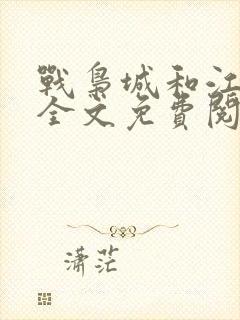 戰梟城和江
全文免費閱
潇茫